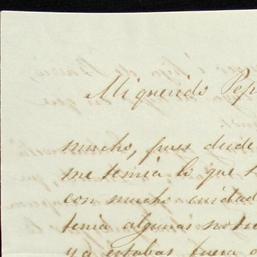 Mi querido Pep
mucho, pues desde
me temia lo que s
con mucho cuidad
tenia algunas noti
ya estabas fuera d